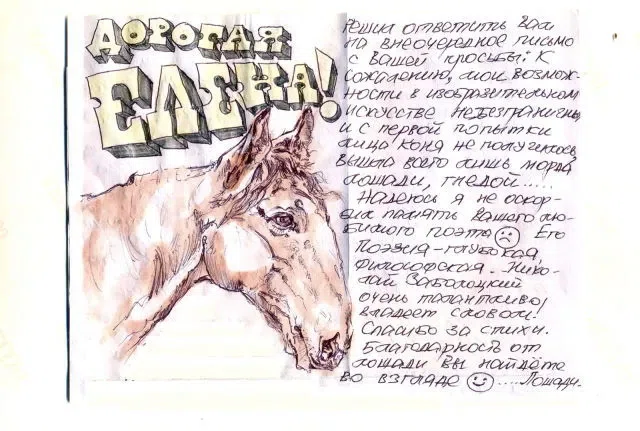 ДОРОГАЯ
ЕЛЕНА!
Решил ответить Вам
на внеочередное письмо
с Вашей просьбой. К
сожалению, мои возмож-
ности в изобразительном
искусстве не безграничны
и с первой попытки
лица коня не получилось,
вышла всего лишь морда
лошади, гнедой.....
Надеюсь я не оскор-
бил память Вашего лю-
бимого поэта ☹ Его
Поэзия-глубокая,
Философская. Нико-
лай Заболоцкий
очень талантливо,
владеет словом!
Спасибо за стихи.
Благодарность от
лошади вы найдёте
во взгляде ☺.....Лошади.